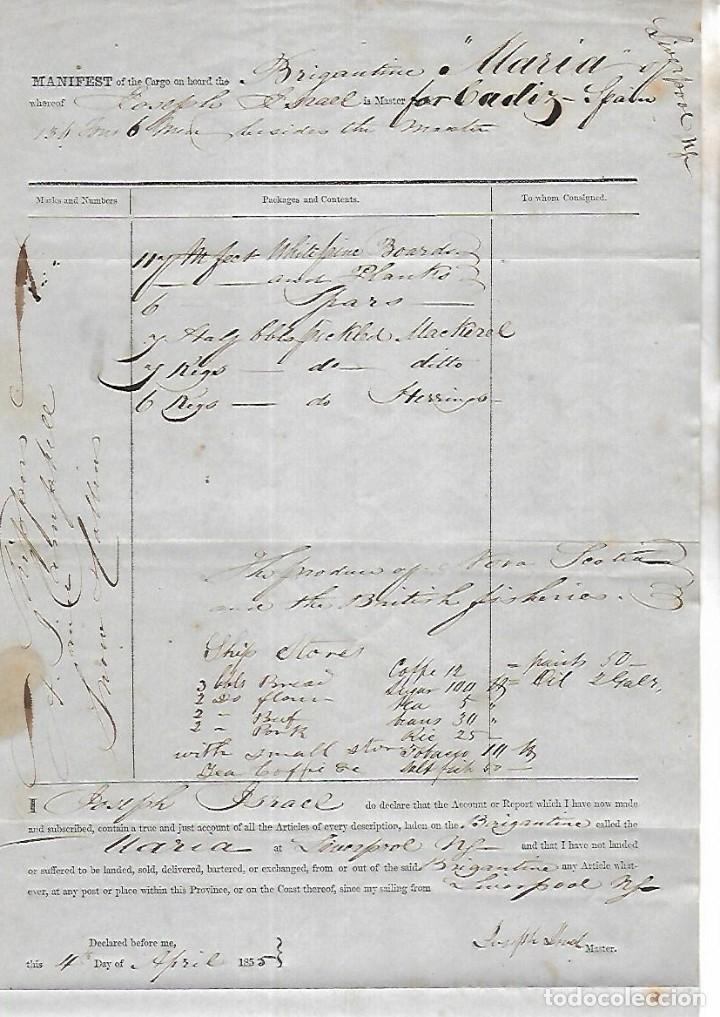 Liverpool NS
MANIFEST of the Cargo on board the Brigantine "Maria" of
whereof Joseph Israel is Master for Cadiz - Spain
134 Tons 6 Men besides the Master
Marks and Numbers Packages and Contents. To whom Consigned.
117 M feet White pine Boards
and Planks
6 — Spars —
7 Half bbls pickled Mackerel
7 Kegs — do — ditto
6 Kegs — do Herrings
The produce of Nova Scotia
and the British fisheries.
Ship Stores
3 bbls Bread
2 Do flour
2 - Beef
2 - Pork
with small stores
Tea Coffie &c
Coffe 12
Sugar 100 lb
Tea 5 "
beans 30 "
Rice 25 -
Tobacco 10 lb
Salt fish 50 -
= paints 50 -
= Oil 2 Gals.
I Joseph Israel do declare that the Account or Report which I have now made
and subscribed, contain a true and just account of all the Articles of every description, laden on the Brigantine called the
Maria at Liverpool NS and that I have not landed
or suffered to be landed, sold, delivered, bartered, or exchanged, from or out of the said Brigantine any Article what-
ever, at any post or place within this Province, or on the Coast thereof, since my sailing from Liverpool NS
Declared before me,
this 4th Day of April 1855
Joseph Israel Master.
todocoleccion